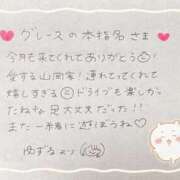 グレースの本指名さま
今月も来てくれてありがとう
愛する山岡家！連れてってくれて
嬉しすぎる ドライブも楽しか
ったねな 足大丈夫だった！！
また一緒に遊ぼうね♡
ゆずるより